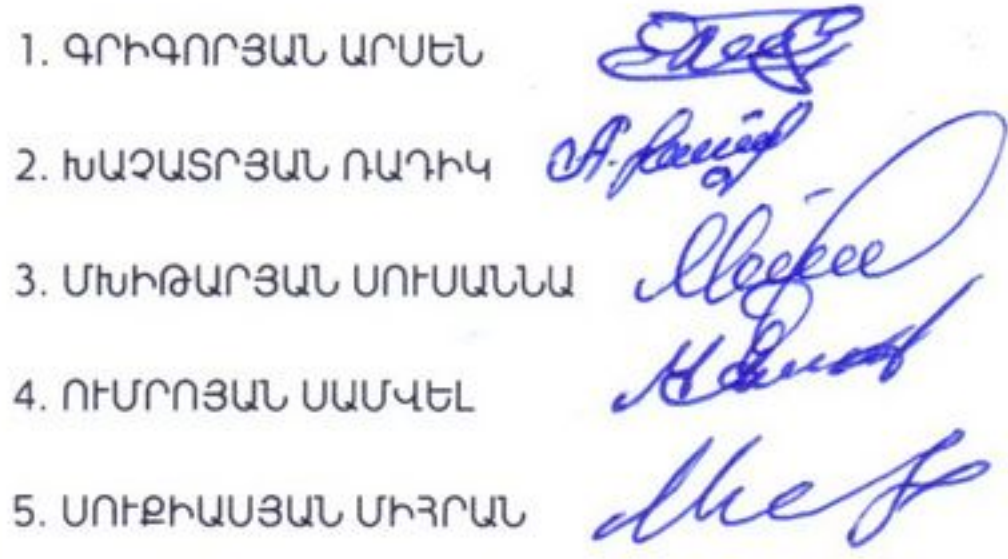 1. ԳՐԻԳՈՐՅԱՆ ԱՐՍԵՆ
2. ԽԱՉԱՏՐՅԱՆ ՌԱԴԻԿ
3. ՄԽԻԹԱՐՅԱՆ ՍՈՒՍԱՆՆԱ
4. ՈՒՄՐՈՅԱՆ ՍԱՄՎԵԼ
5. ՍՈՒՔԻԱՍՅԱՆ ՄԻՀՐԱՆ